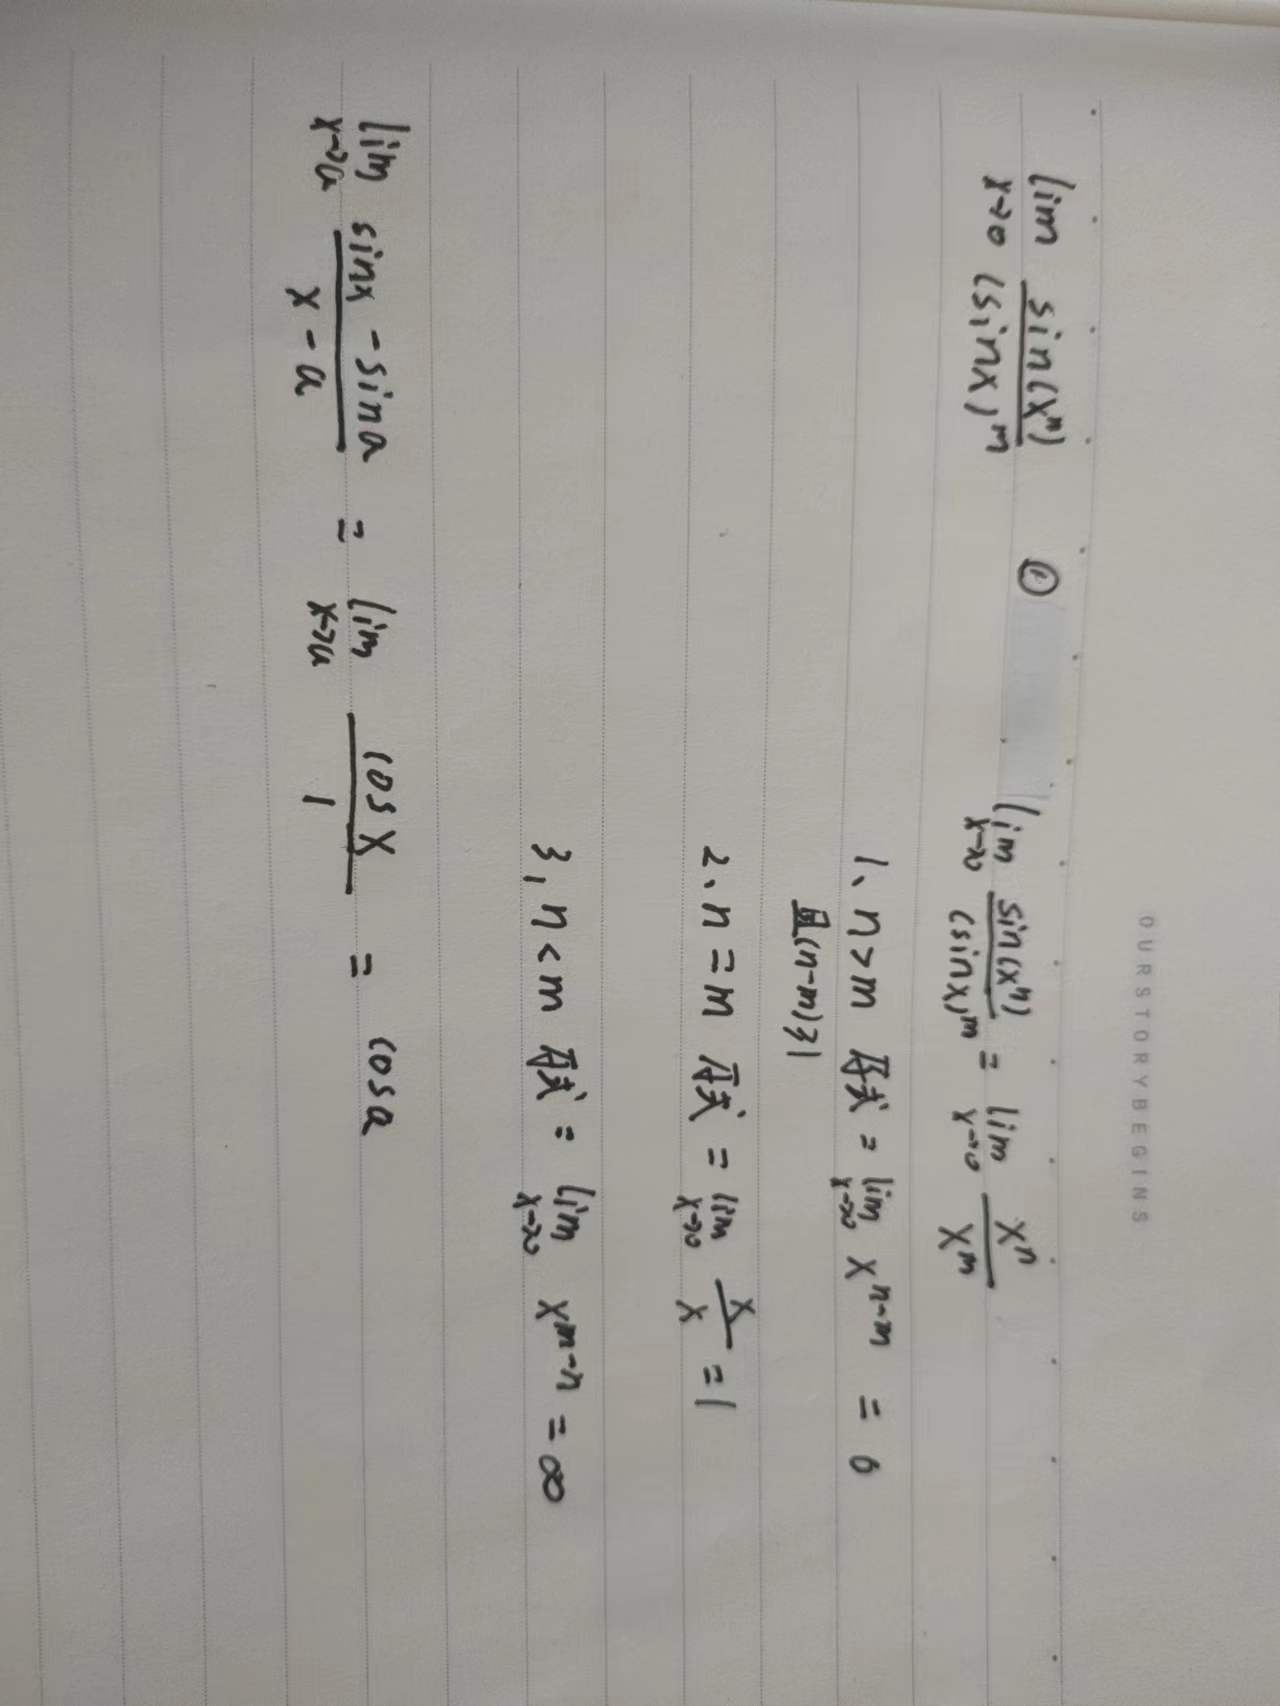 OURSTORYBEGINS
lim x→0 sin(xⁿ)/(sinx)ᵐ ① lim x→0 sin(xⁿ)/(sinx)ᵐ = lim x→0 xⁿ/xᵐ
1、n>m 原式= lim x→0 xⁿ⁻ᵐ = 0
且(n-m)≥1
2、n=m 原式= lim x→0 x/x =1
3、n<m 原式= lim x→0 xᵐ⁻ⁿ =∞
lim x→a (sinx-sina)/(x-a) = lim x→a cosx/1 = cosa